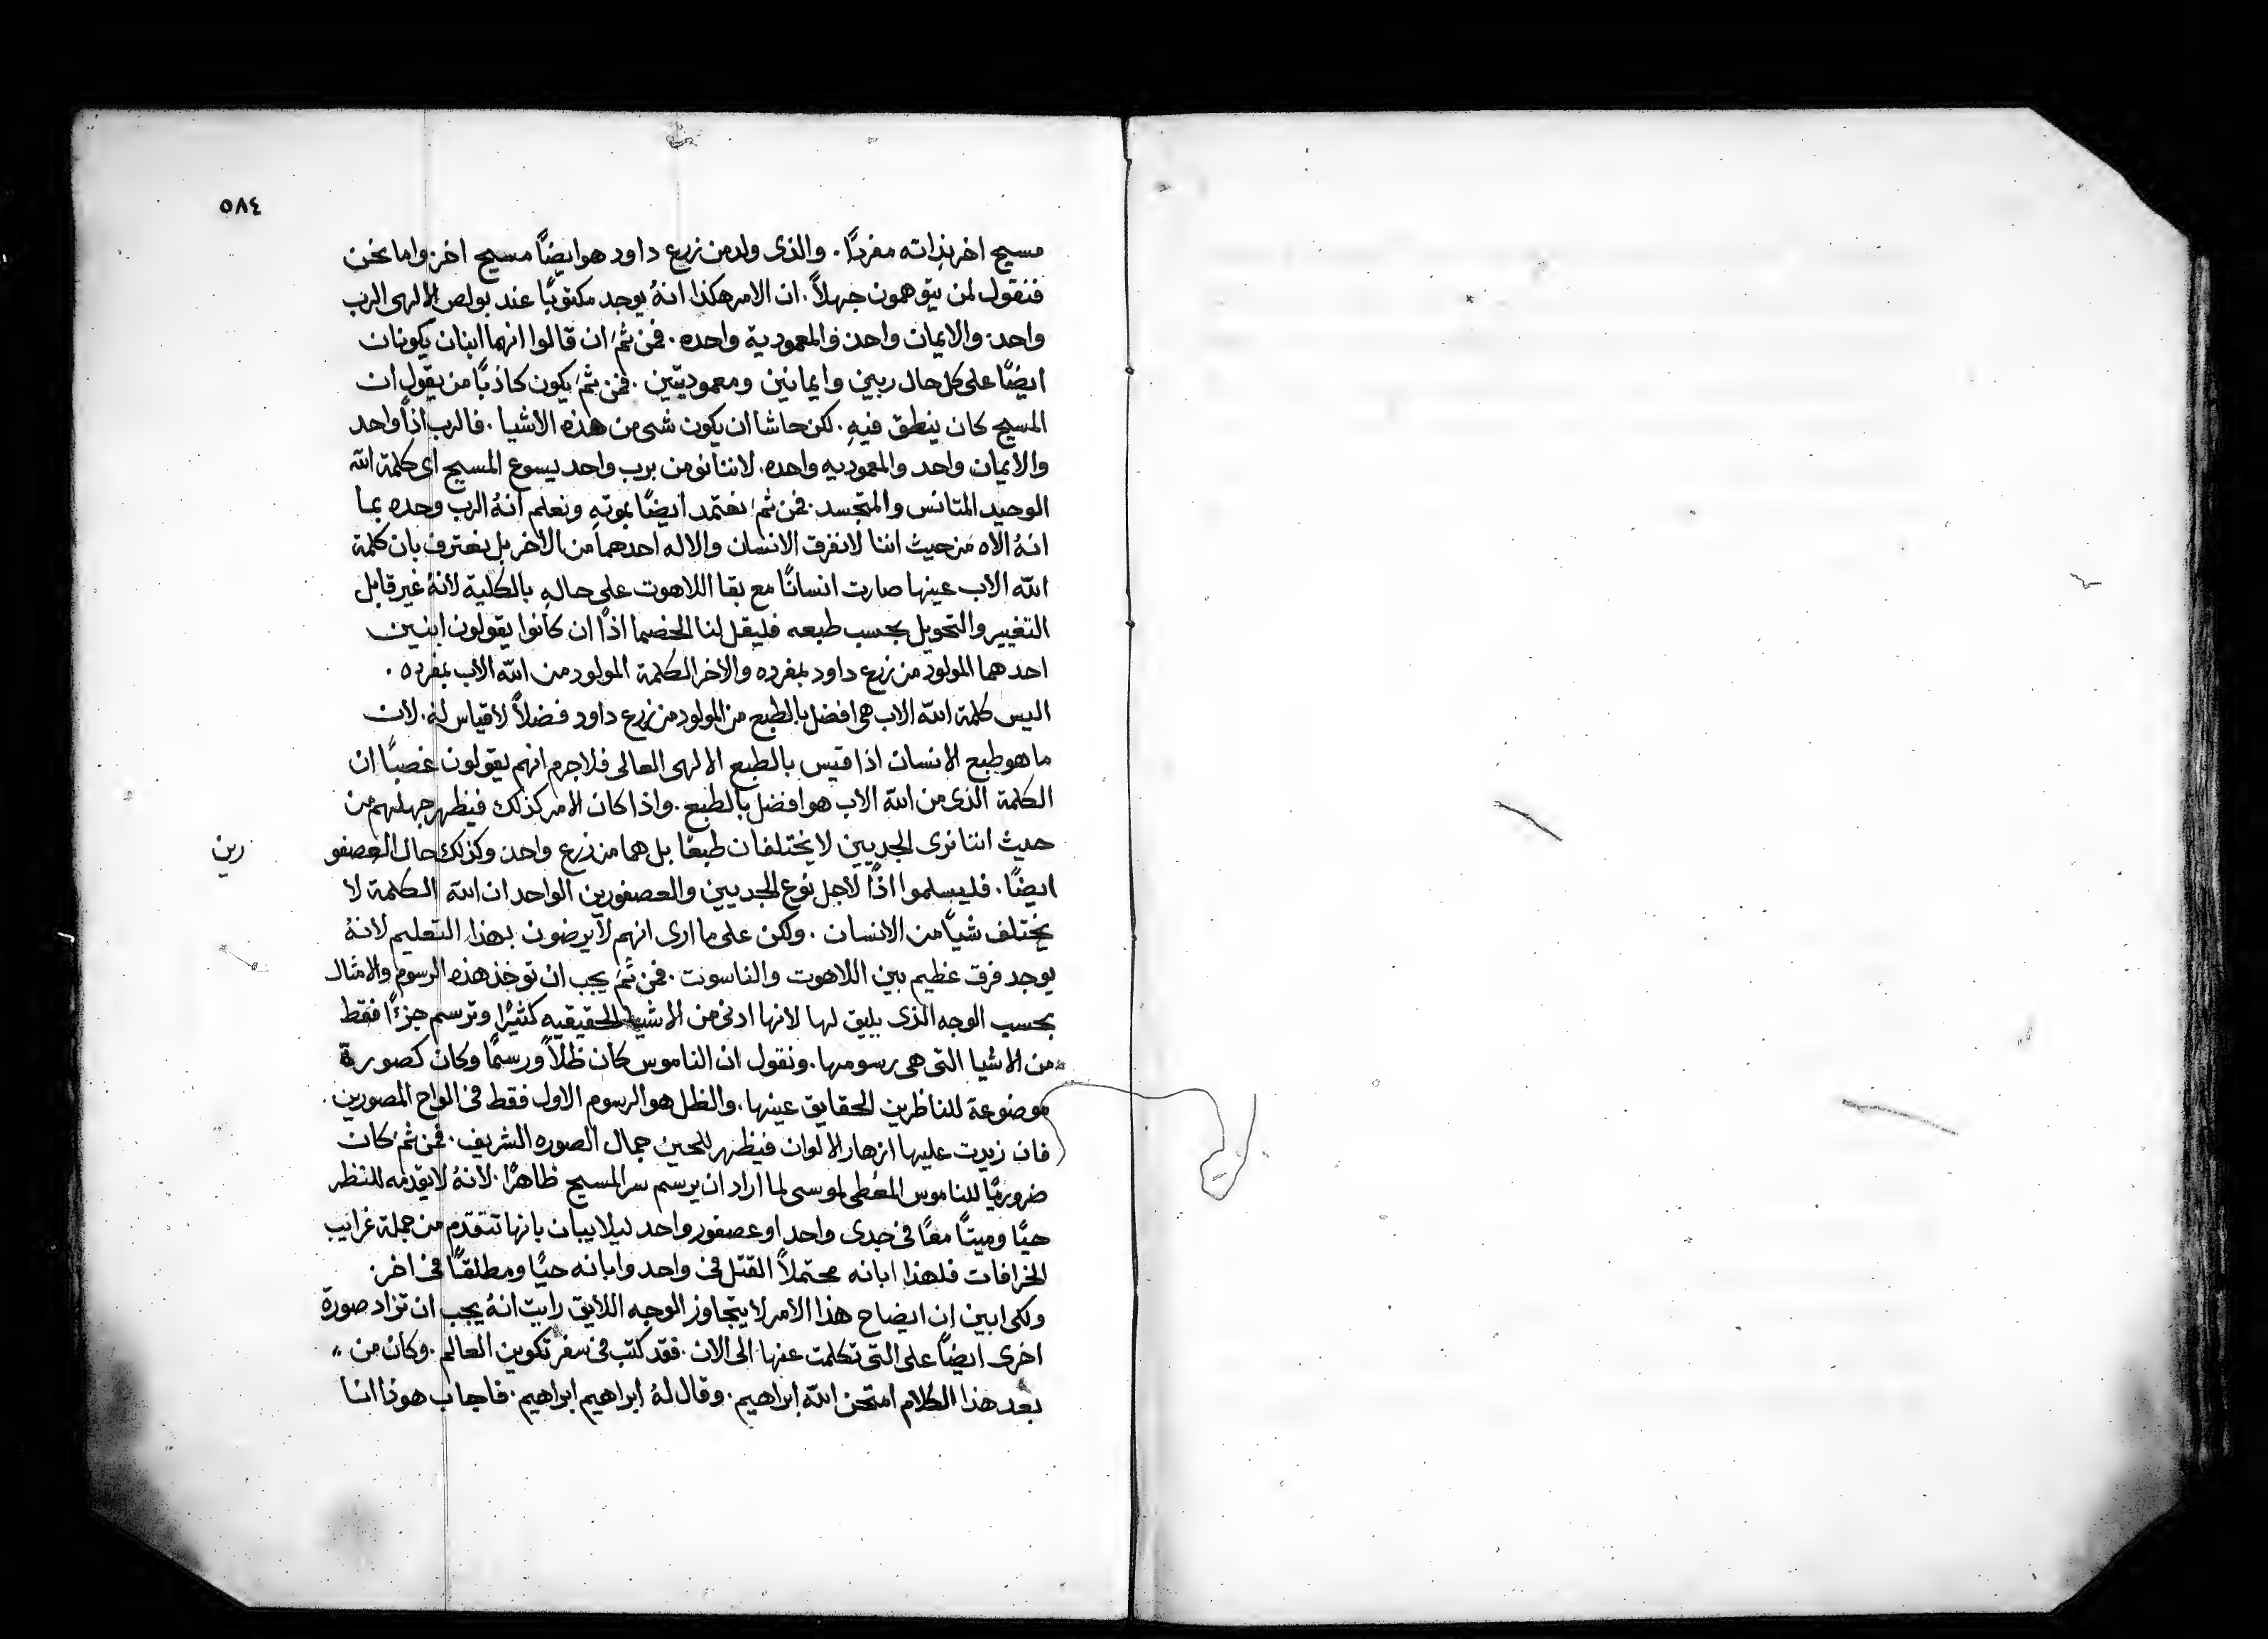 ٥٨٤
مسيح اخر بذاته مفردًا. والذى ولد من زرع داود هو ايضًا مسيح اخر. واما نحن
فنقول لمن يتوهمون جهلاً. ان الامر هكذا انهُ يوجد مكتوبًا عند بولص الالهى الرب
واحد. والايمان واحد. والمعمودية واحده. فمن ثمَ ان قالوا انهما ابنان يكونان
ايضًا على كل حال ربين وايمانين ومعموديتين. فمن ثمَ يكون كاذبًا من يقول ان
المسيح كان ينطق فيهِ. لكن حاشا ان يكون شى من هذه الاشيا. فالرب اذًا واحد
والايمان واحد والمعموديه واحده. لاننا نومن برب واحد يسوع المسيح اى كلمة الله
الوحيد المتانس والمتجسد. فمن ثمَ نعتمد ايضًا بموتهِ ونعلم انهُ الرب وحده بما
انهُ الاه من حيث اننا لانفرق الانسان والاله احدهما من الاخر بل نعترف بان كلمة
الله الاب عينها صارت انسانًا مع بقا اللاهوت على حالهِ بالكلية لانهُ غير قابل
التغيير والتحويل بحسب طبعه فليقل لنا الخصما اذًا ان كانوا يقولون ابنين
احدهما المولود من زرع داود بمفرده والاخر الكلمة المولود من الله الاب بمفرده.
اليس كلمة الله الاب هى افضل بالطبع من المولود من زرع داود فضلاً لاقياس له. لان
ما هو طبع الانسان اذا قيس بالطبع الالهى العالى فلاجرم انهم يقولون غصبًا ان
الكلمة الذى من الله الاب هو افضل بالطبع. واذا كان الامر كذلك فيظهر جهلهم من
حيث اننا نرى الجديين لا يختلفان طبعًا بل هما من زرع واحد وكذلك حال العصفو
رين
ايضًا. فليسلموا اذًا لاجل نوع الجديين والعصفورين الواحد ان الله الكلمة لا
يختلف شيًا من الانسان. ولكن على ما ارى انهم لايرضون بهذا التعليم لانهُ
يوجد فرق عظيم بين اللاهوت والناسوت. فمن ثمَ يجب ان توخذ هذه الرسوم والامثال
بحسب الوجه الذى يليق لها لانها ادنى من الاشيا الحقيقيه كثيرًا وترسم جزءًا فقط
من الاشيا التى هى رسومها. ونقول ان الناموس كان ظلاً ورسمًا وكان كصورة
موضوعة للناظرين الحقايق عينها. والظل هو الرسوم الاول فقط فى الواح المصورين.
فان زيدت عليها ازهار الالوان فيظهر للحين جمال الصوره الشريف. فمن ثمَ كان
ضروريًا للناموس المعُطى لموسى لما اراد ان يرسم سر المسيح ظاهرًا. لانهُ لايقدمه للنظر
حيًا وميتًا معًا فى جدى واحد او عصفور واحد ليلا يبان بانها تتقدم من جملة غرايب
الخرافات فلهذا ابانه محتملاً القتل فى واحد وابانه حيًا ومطلقًا فى اخر.
ولكى ابين ان ايضاح هذا الامر لايتجاوز الوجه اللايق رايت انهُ يجب ان تزاد صورة
اخرى ايضًا على التى تكلمت عنها الى الان. فقد كتب فى سفر تكوين العالم. وكان من
بعد هذا الكلام امتحن الله ابراهيم. وقال لهُ ابراهيم ابراهيم. فاجاب هوذا انا